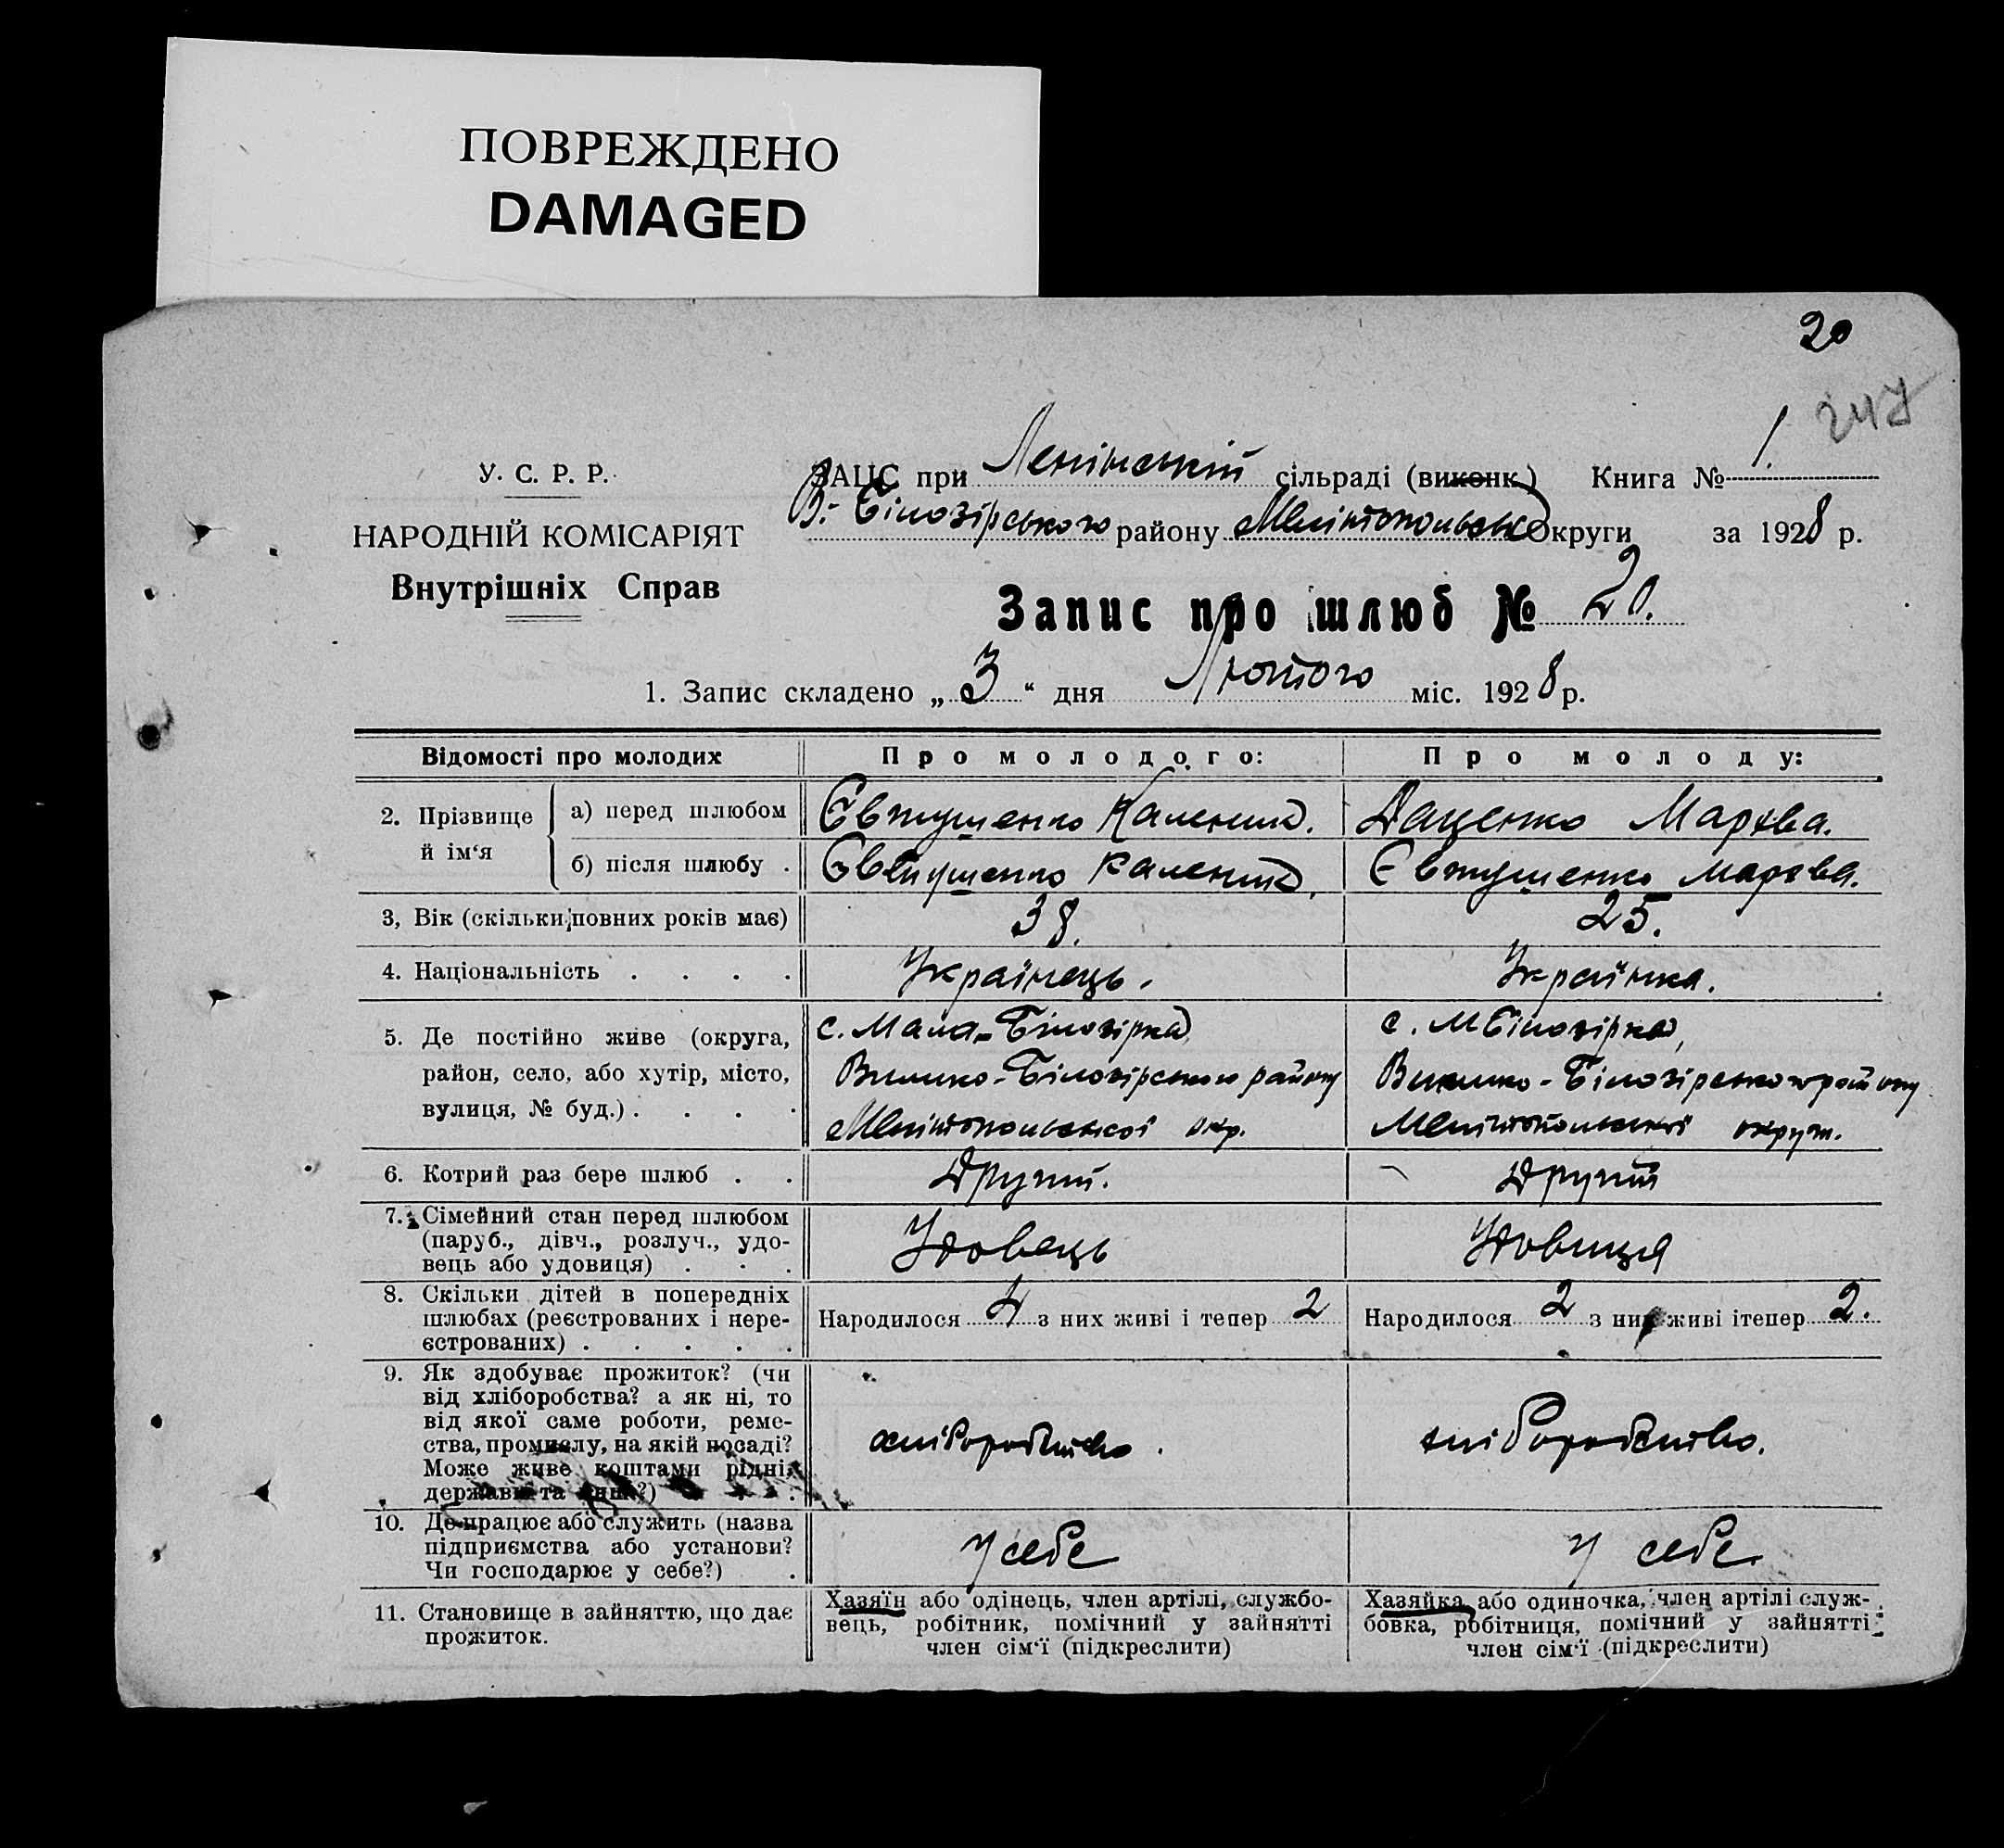 ПОВРЕЖДЕНО
DAMAGED
20
247
У. С. Р. Р.
НАРОДНІЙ КОМІСАРІЯТ
Внутрішніх Справ
ЗАЦС при Ленінській сільраді (виконк.) Книга № 1.
В.-Білозірського району Мелітопольськ округи за 1928 р.
Запис про шлюб № 20.
1. Запис складено „ 3 “ дня Лютого міс. 1928 р.
Відомості про молодих Про молодого: Про молоду:
2. Прізвище й ім‘я
а) перед шлюбом Євтушенко Каленик. Даценко Марква.
б) після шлюбу . Євтушенко Каленик. Євтушенко Марква.
3, Вік (скільки повних років має) 38. 25.
4. Національність . . . . Українець. Українка.
5. Де постійно живе (округа, с. Мала-Білозірка с. М Білозірка,
район, село, або хутір, місто, Велико-Білозірського району Велико-Білозірського району
вулиця, № буд.) . . . . Мелітопольської окр. Мелітопольської округи.
6. Котрий раз бере шлюб . . Другий. Другий
7. Сімейний стан перед шлюбом
(паруб., дівч., розлуч., удо- Удовець Удовиця
вець або удовиця) . . .
8. Скільки дітей в попередніх
шлюбах (реєстрованих і нере- Народилося 4 з них живі і тепер 2 Народилося 2 з них живі ітепер 2.
єстрованих) . . . . .
9. Як здобуває прожиток? (чи
від хліборобства? а як ні, то
від якої саме роботи, реме-
ства, промислу, на якій посаді? хліборобство. хліборобство.
Може живе коштами рідні,
держави та инш?) . . .
10. Де працює або служить (назва
підприємства або установи? У себе У себе
Чи господарює у себе?) .
11. Становище в зайняттю, що дає Хазяїн або одінець, член артілі, службо- Хазяйка або одиночка, член артілі служ-
прожиток. вець, робітник, помічний у зайнятті бовка, робітниця, помічний у зайнятті
член сім‘ї (підкреслити) член сім‘ї (підкреслити)